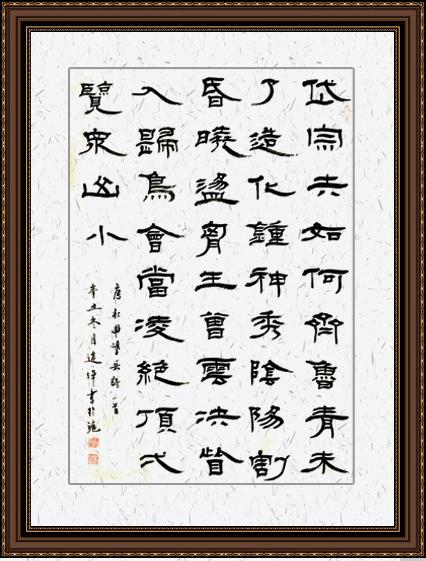 岱宗夫如何齊魯青未
了造化鍾神秀陰陽割
昏曉盪胷生曾雲決眥
入歸鳥會當凌絕頂弌
覽衆山小
唐杜甫望岳詩一首
辛丑冬月書於滬